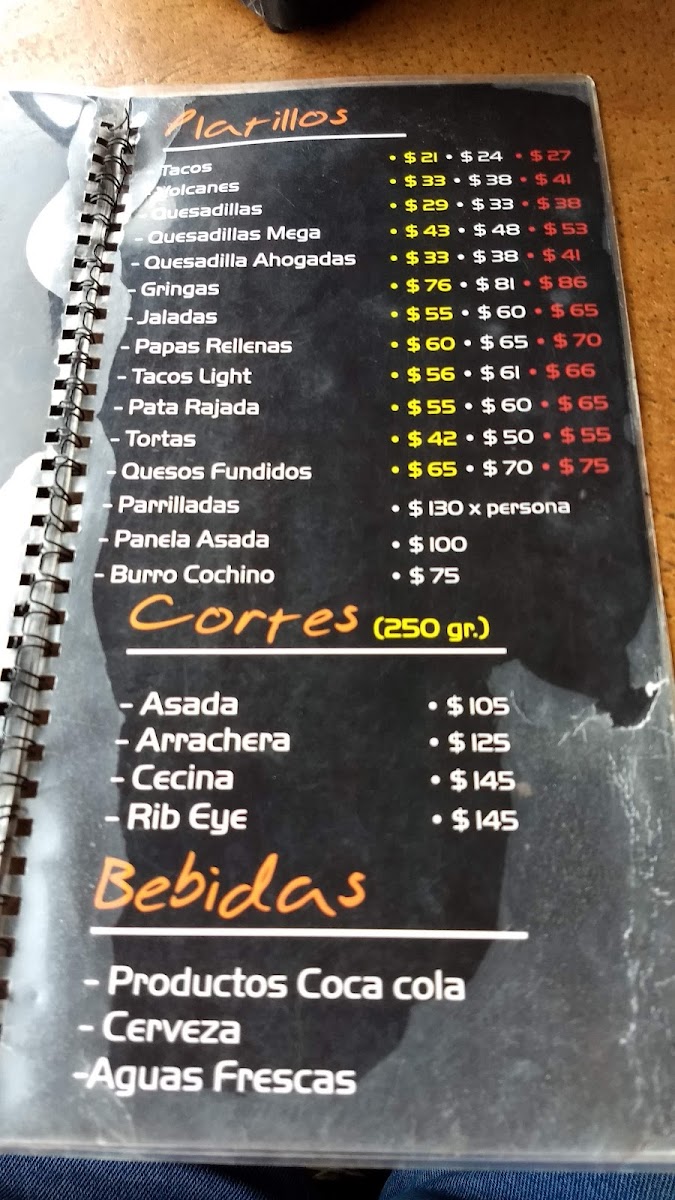 Platillos
- Tacos • $21 • $24 • $27
- Volcanes • $33 • $38 • $41
- Quesadillas • $29 • $33 • $38
- Quesadillas Mega • $43 • $48 • $53
- Quesadilla Ahogadas • $33 • $38 • $41
- Gringas • $76 • $81 • $86
- Jaladas • $55 • $60 • $65
- Papas Rellenas • $60 • $65 • $70
- Tacos Light • $56 • $61 • $66
- Pata Rajada • $55 • $60 • $65
- Tortas • $42 • $50 • $55
- Quesos Fundidos • $65 • $70 • $75
- Parrilladas • $130 x persona
- Panela Asada • $100
- Burro Cochino • $75
Cortes (250 gr.)
- Asada • $105
- Arrachera • $125
- Cecina • $145
- Rib Eye • $145
Bebidas
- Productos Coca cola
- Cerveza
-Aguas Frescas